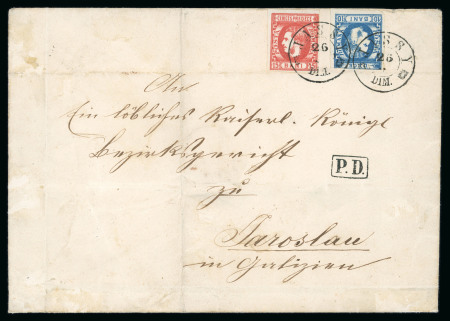 26
DIM.
26
DIM.
An
Ein löbliches Kaiserl. Königl
Bezirksgericht
P.D.
zu
Jaroslau
in Galizien